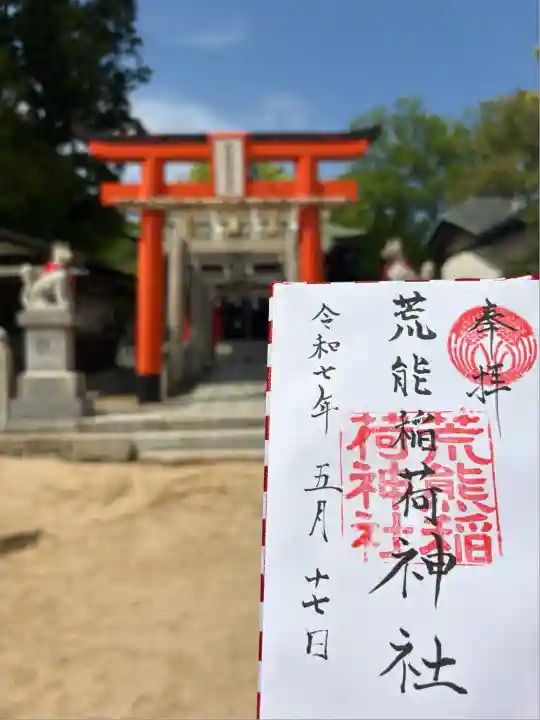 奉拝
荒能稲荷神社
荒熊稲
荷神社
令和七年 五月 十七日